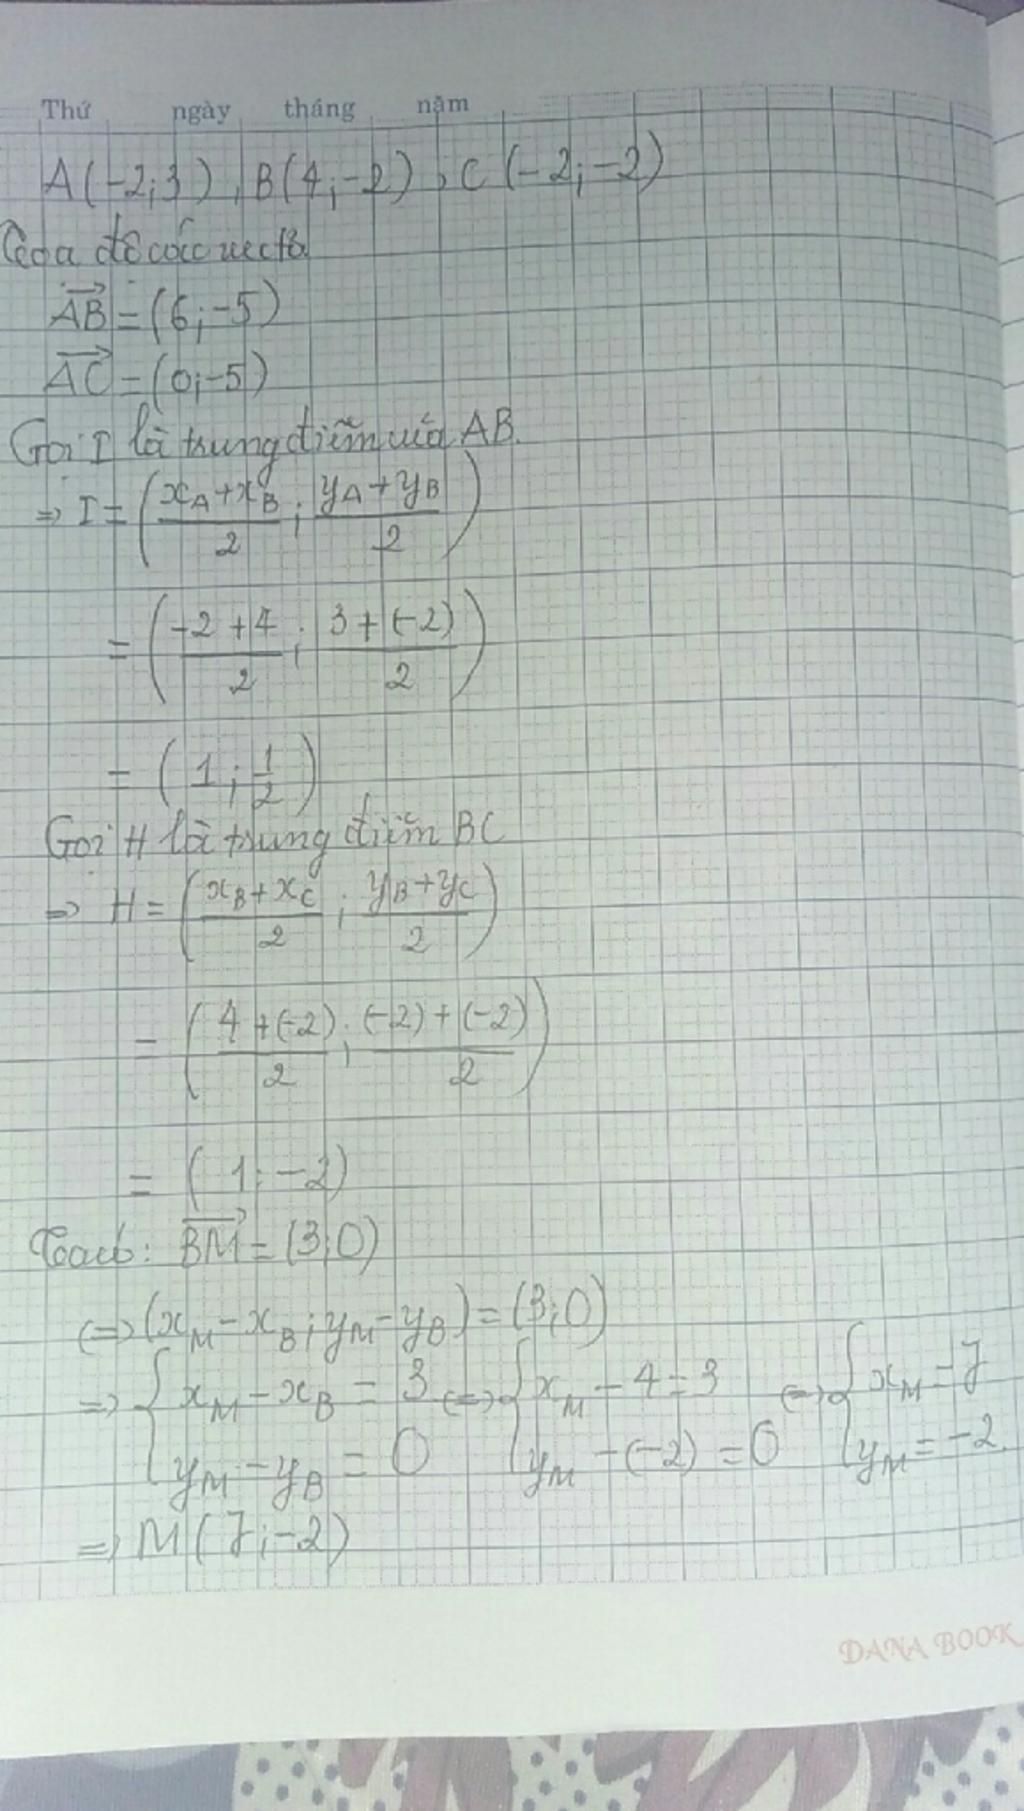 Thứ ngày tháng năm
A(-2;3), B(4;-2), C(-2;-2)
Tọa độ các vectơ
\overrightarrow{AB} = (6;-5)
\overrightarrow{AC} = (0;-5)
Gọi I là trung điểm của AB.
=> I = ( \frac{x_A+x_B}{2} ; \frac{y_A+y_B}{2} )
= ( \frac{-2+4}{2} ; \frac{3+(-2)}{2} )
= ( 1 ; \frac{1}{2} )
Gọi H là trung điểm BC
=> H = ( \frac{x_B+x_C}{2} ; \frac{y_B+y_C}{2} )
= ( \frac{4+(-2)}{2} ; \frac{(-2)+(-2)}{2} )
= ( 1; -2)
Ta có: \overrightarrow{BM} = (3;0)
<=> (x_M - x_B ; y_M - y_B) = (3;0)
=> { x_M - x_B = 3 <=> { x_M - 4 = 3 <=> { x_M = 7
y_M - y_B = 0 y_M - (-2) = 0 y_M = -2.
=> M(7;-2)
DANA BOOK